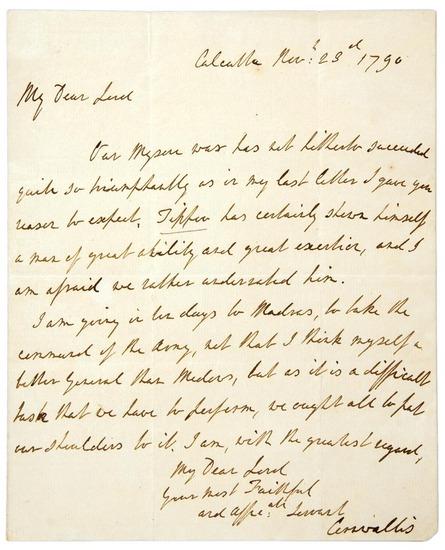 Calcutta Novr. 23d 1790
My Dear Lord
Our Mysore war has not hitherto succeeded
quite so triumphantly as in my last letter I gave you
reason to expect. Tippoo has certainly shewn himself
a man of great ability and great exertion, and I
am afraid we rather underrated him.
I am going in ten days to Madras, to take the
command of the Army, not that I think myself a
better General than Medows, but as it is a difficult
task that we have to perform, we ought all to put
our shoulders to it. I am, with the greatest regard,
My Dear Lord
Your most Faithful
and affecate Servant
Cornwallis